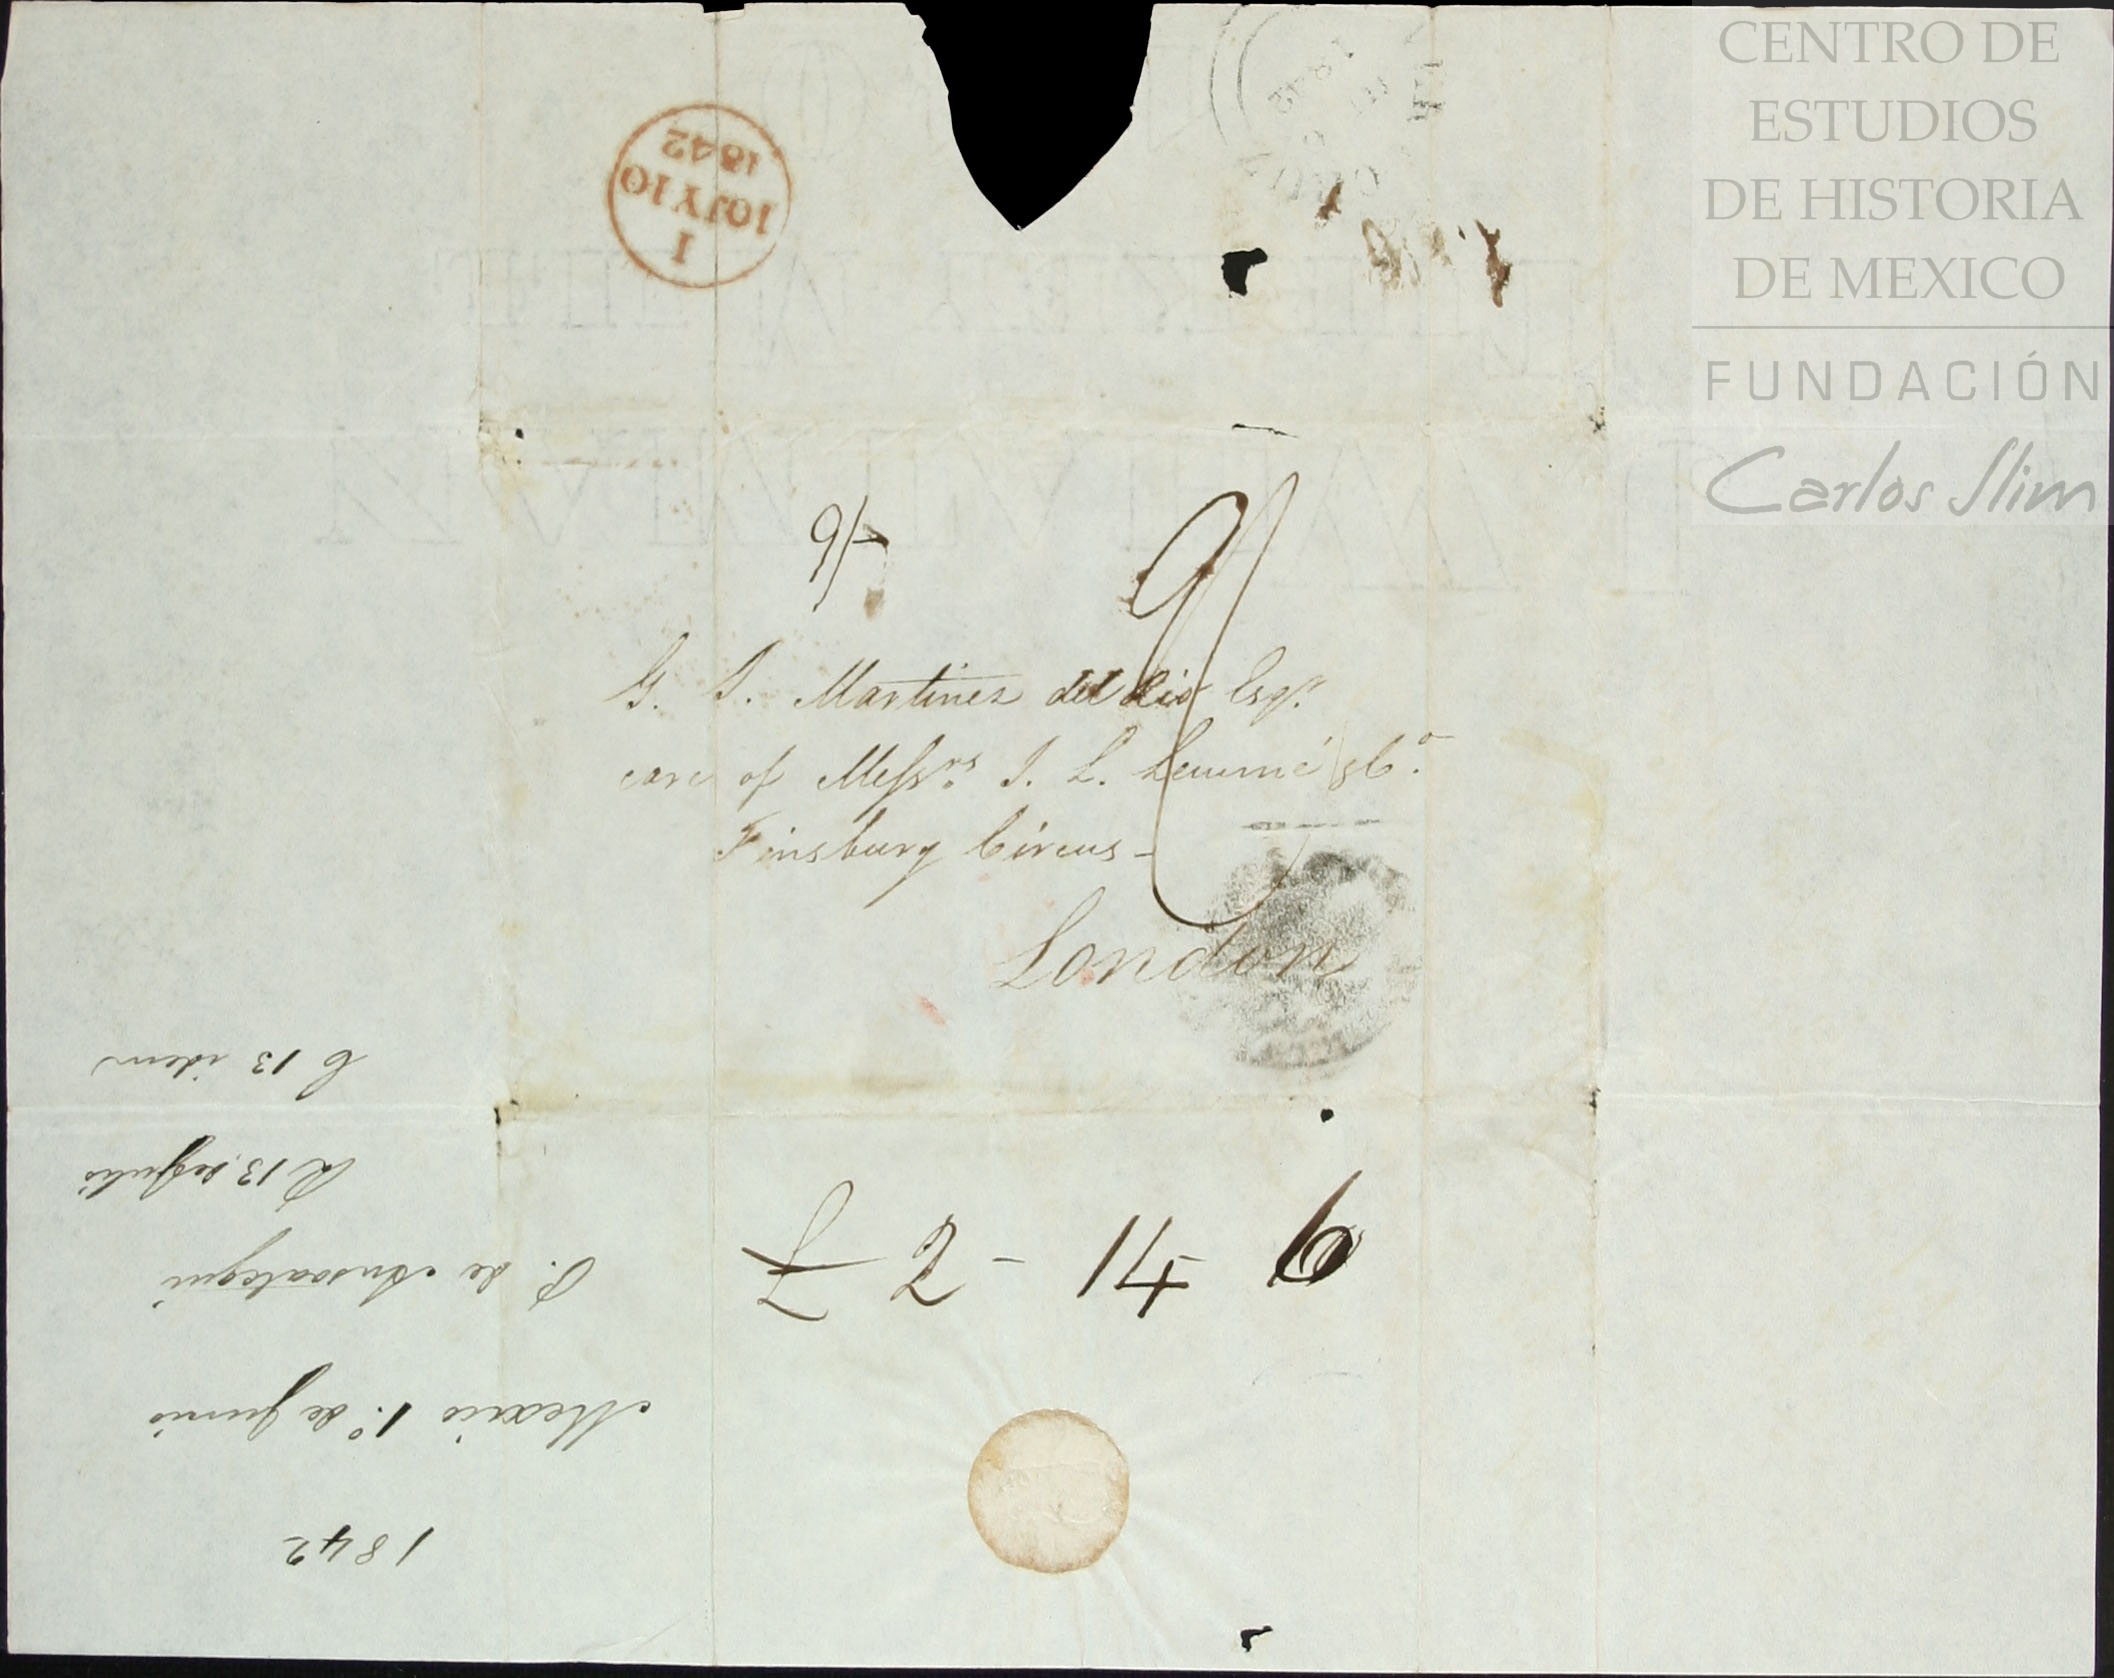 1842
10JY10
I
9/-
9/
G. J. Martinez del Rio Esqr.
care of Messrs. J. L. Lemmé & Co.
Finsbury Circus -
London
£ 2 - 14 6
1842
Mexico 1.º de Junio
P. de Ansoategui
R 13 de Julio
C 13 idem
CENTRO DE
ESTUDIOS
DE HISTORIA
DE MEXICO
FUNDACIÓN
Carlos Slim